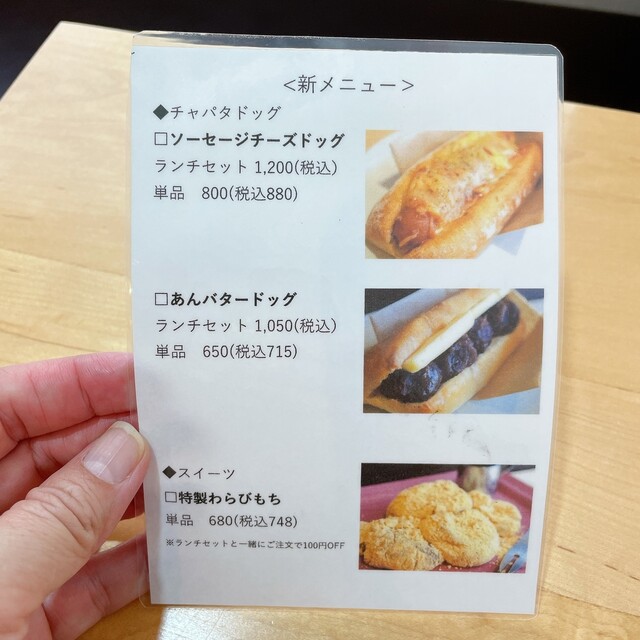 <新メニュー>
◆チャパタドッグ
□ソーセージチーズドッグ
ランチセット 1,200(税込)
単品 800(税込880)
□あんバタードッグ
ランチセット 1,050(税込)
単品 650(税込715)
◆スイーツ
□特製わらびもち
単品 680(税込748)
※ランチセットと一緒にご注文で100円OFF